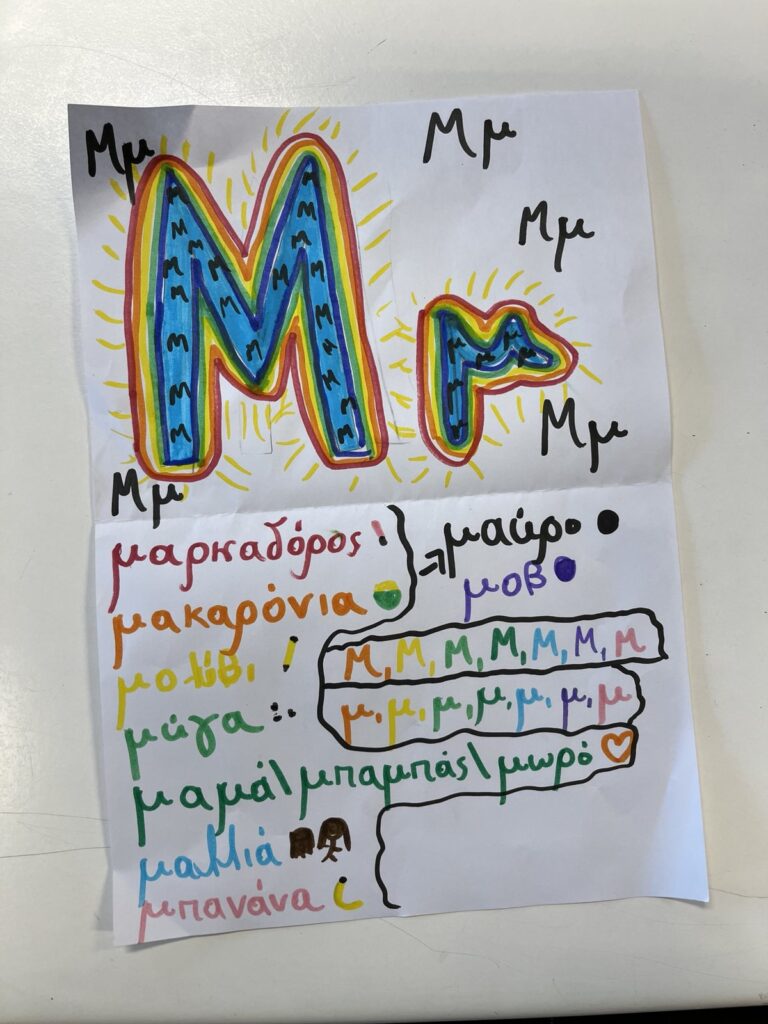 Μμ
Μμ
Μμ
Μ μ
Μμ
Μμ
μαρκαδόρος
μαύρο
μοβ
μακαρόνια
μολύβι
Μ, Μ, Μ, Μ, Μ, Μ, Μ
μύγα
μ, μ, μ, μ, μ, μ, μ
μαμά\μπαμπάς\μωρό
μαλλιά
μπανάνα